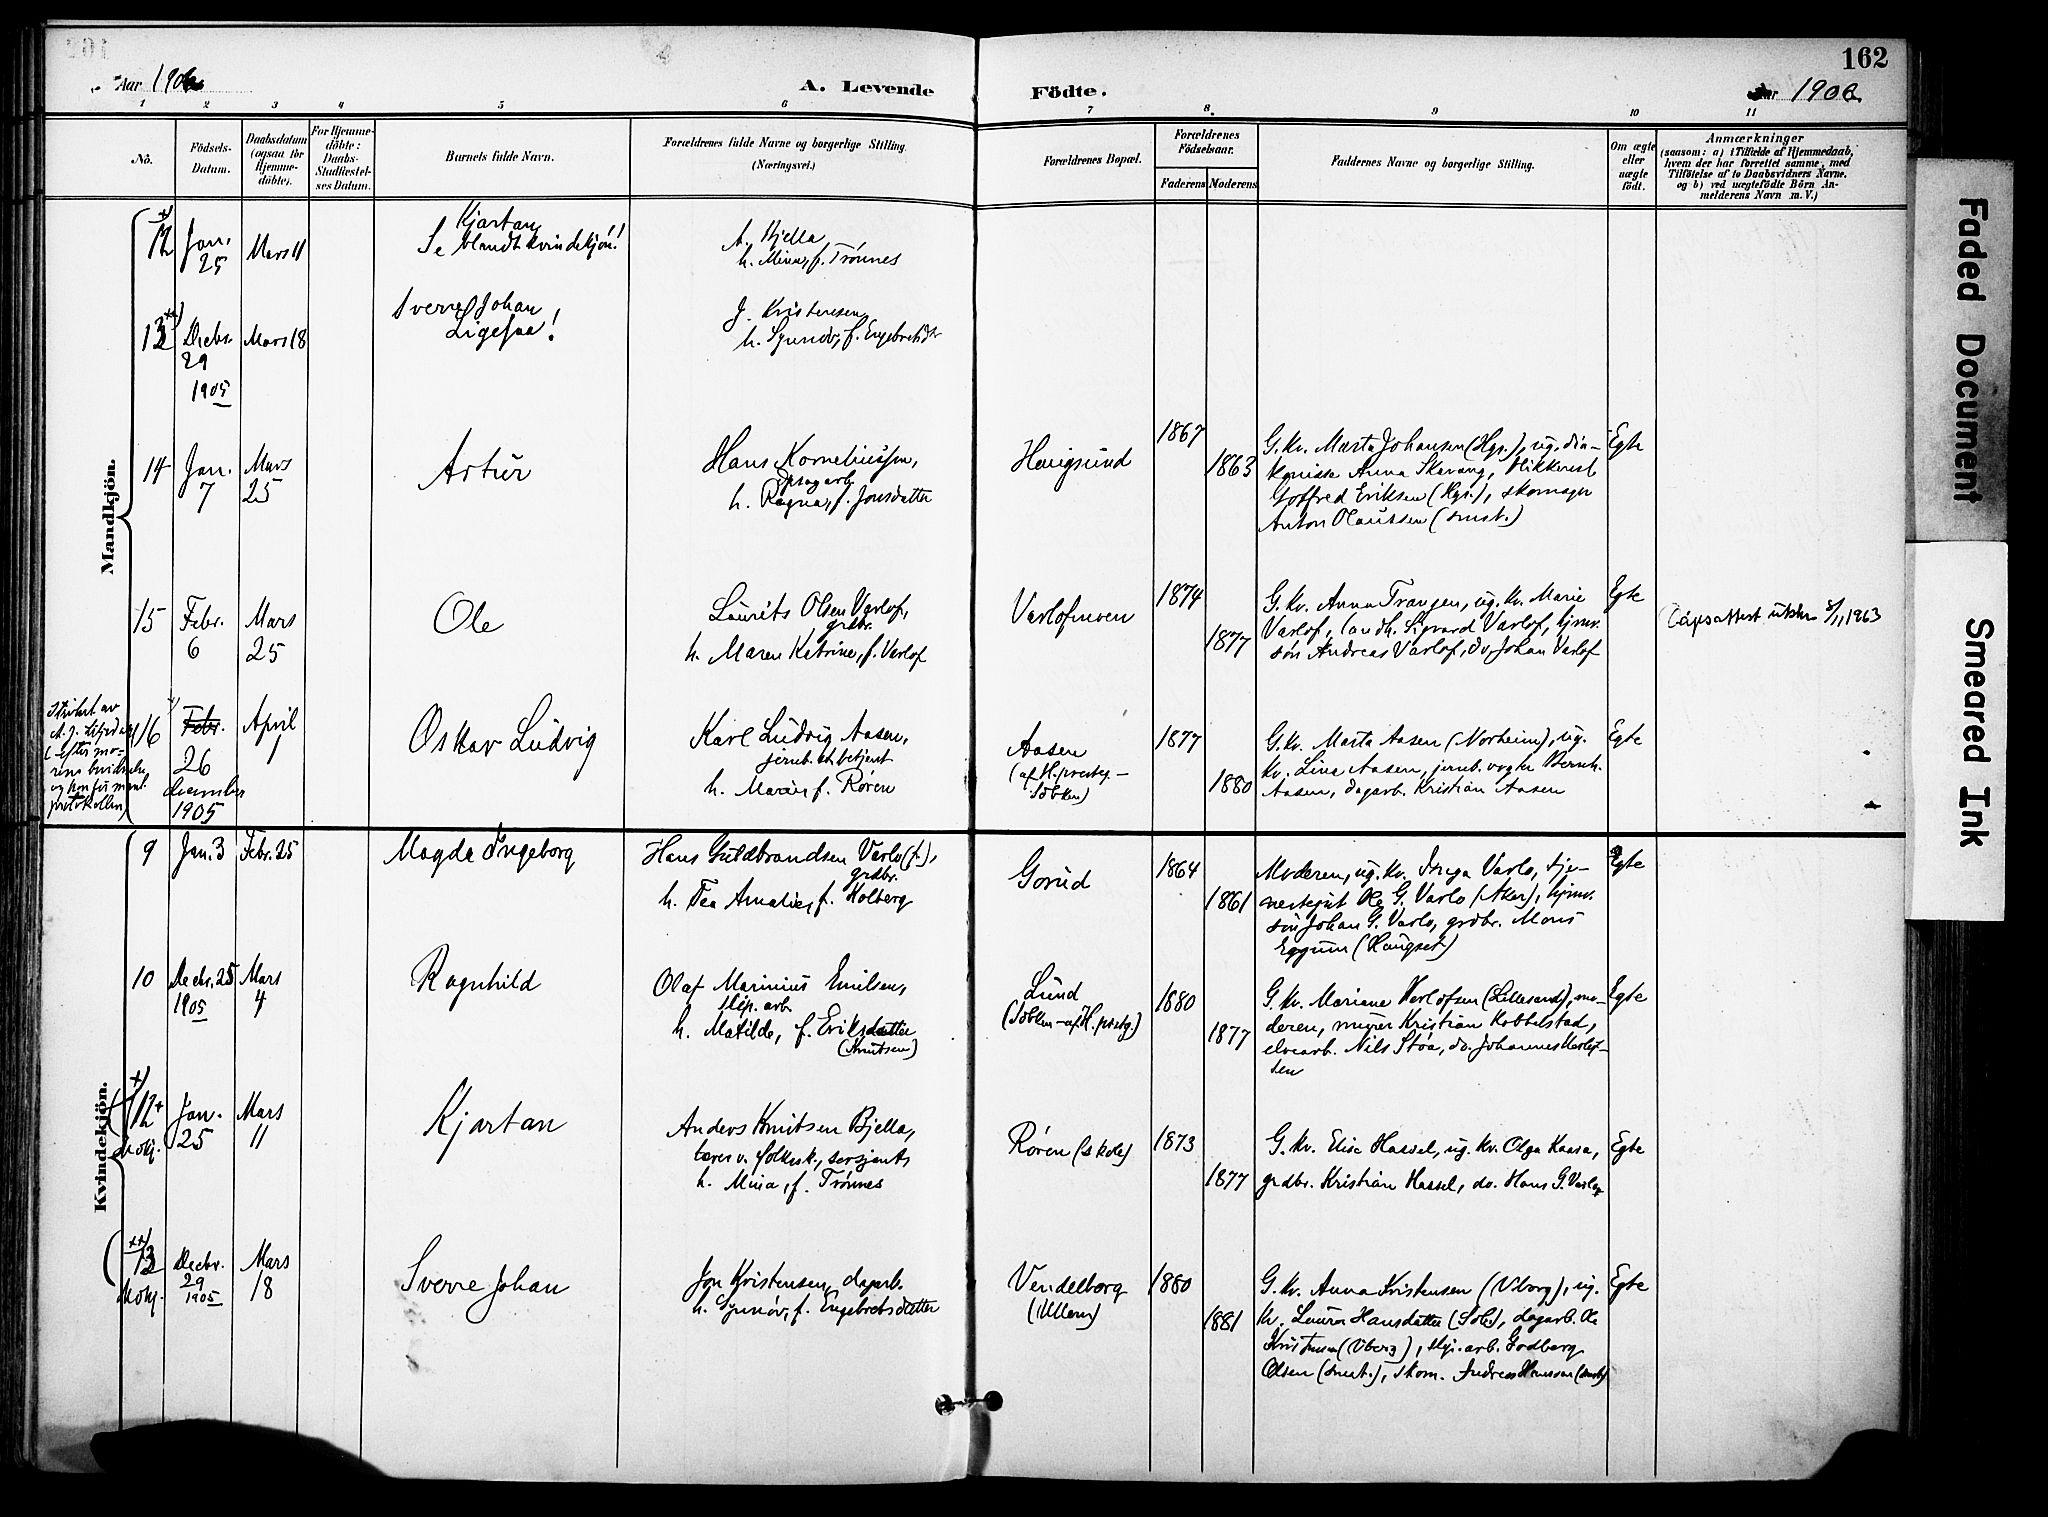 162
Aar 1906
A. Levende Födte.
Aar 1906
1 2 3 4 5 6 7 8. 9 10 11
No.
Födsels-Datum.
Daabsdatum (ogsaa for Hjemme-döbte).
For Hjemme-döbte: Daabs-Stadfæstel-ses Datum.
Barnets fulde Navn.
Forældrenes fulde Navne og borgerlige Stilling. (Næringsvei.)
Forældrenes Bopæl.
Forældrenes Födselsaar.
Faderens Moderens
Faddernes Navne og borgerlige Stilling.
Om ægte eller uægte födt.
Anmærkninger
(saasom: a) i Tilfælde af Hjemmedaab,
hvem der har forrettet samme, med
Tilföielse af to Daabsvidners Navne.
og b) ved uægtefödte Börn An-
melderens Navn m. V.)
Mandkjön.
+) 12 Jan. 25 Mars 11
Kjartan
Se blandt kvindekjøn!!
A. Bjella
h. Mina, f. Trönnes
13 ++) Decbr. 29 1905 Mars 18
Sverre Johan
Ligesaa!
J. Kristensen
h. Synnöv, f. Engebretsdtr
14 Jan. 7 Mars 25
Artur
Hans Korneliussen,
h. Ragna, f. Jonsdatter
Haugsund
1867
1863
G. kv. Marta Johansen (Hgs.), ug. dia-
konisse Anna Skavang,
Gotfred Eriksen (Hgs.), skomager
Anton Olaussen (smst.)
Egte
15 Febr. 6 Mars 25
Ole
Laurits Olsen Varlof,
grdbr.
h. Maren Katrine, f. Varlof
Varlofmoen
1874
1877
G. kv. Anna Transen, ug. kv. Marie
Varlof, landh. Sigvard Varlof, hjmv.
sön Andreas Varlof, do. Johan Varlof
Egte
Dåpsattest utskr. 8/11 1963
16 Febr. 26 december 1905 April 1
Oskar Ludvig
Karl Ludvig Aasen,
jernb. betjent
h. Marie, f. Røren
Aasen
(af H. prestg.-
Solbken)
1877
1880
G. kv. Marta Aasen (Norheim), ug.
kv. Lina Aasen, jernb. vogter Bernh.
Aasen, dagarb. Kristian Aasen
Egte
Kvindekjön.
9 Jan. 3 Febr. 25
Magda Ingeborg
Hans Guldbrandsen Varlo(f),
grdbr.
h. Tea Amalie, f. Holberg
Gorud
1864
1861
Moderen, ug. kv. Inga Varlo, tje-
nestegut Ole G. Varlo (Aker), hjmv.
sön Johan G. Varlo, grdbr. Mons
Eggum (Haugset)
Egte
10 Decbr. 25 1905 Mars 4
Ragnhild
Olaf Marinius Emilsen,
slip. arb.
h. Matilde, f. Eriksdatter
(Knutsen)
Lund
(Solbken - af H. prstg.)
1880
1877
G. kv. Mariane Herlofsen (Lillesand), mo-
deren, murer Kristian Kobbelstad,
elvearb. Nils Støa, do. Johannes Herlof-
sen
Egte
+) 12 + Mdkj. Jan. 25 Mars 11
Kjartan
Anders Knutsen Bjella,
lærer v. folkesk., sersjent,
h. Mina, f. Trönnes
Røren (skole)
1873
1877
G. kv. Elise Hassel, ug. kv. Olga Kaasa,
grdbr. Kristian Hassel, do. Hans G. Varlo
Egte
++) 13 Mdkj. Decbr. 29 1905 Mars 18
Sverre Johan
Jon Kristensen, dagarb.
h. Synnöv, f. Engebretsdatter
Vendelborg
(Ullern)
1880
1881
G. kv. Anna Kristensen (Viborg), ug.
kv. Laura Hansdatter (Sol), dagarb. Ole
Kristensen (Viborg), slip. arb. Godberg
Olsen (smst.), skom. Andreas Hanssen (smst.)
Egte
Faded Document
Smeared Ink